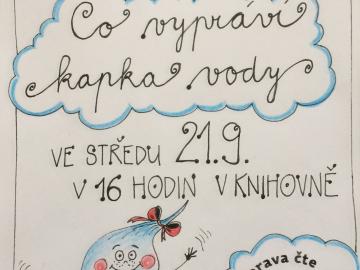 Co vypráví
kapka vody
VE STŘEDU 21.9.
V 16 HODIN V KNIHOVNĚ
rava čte